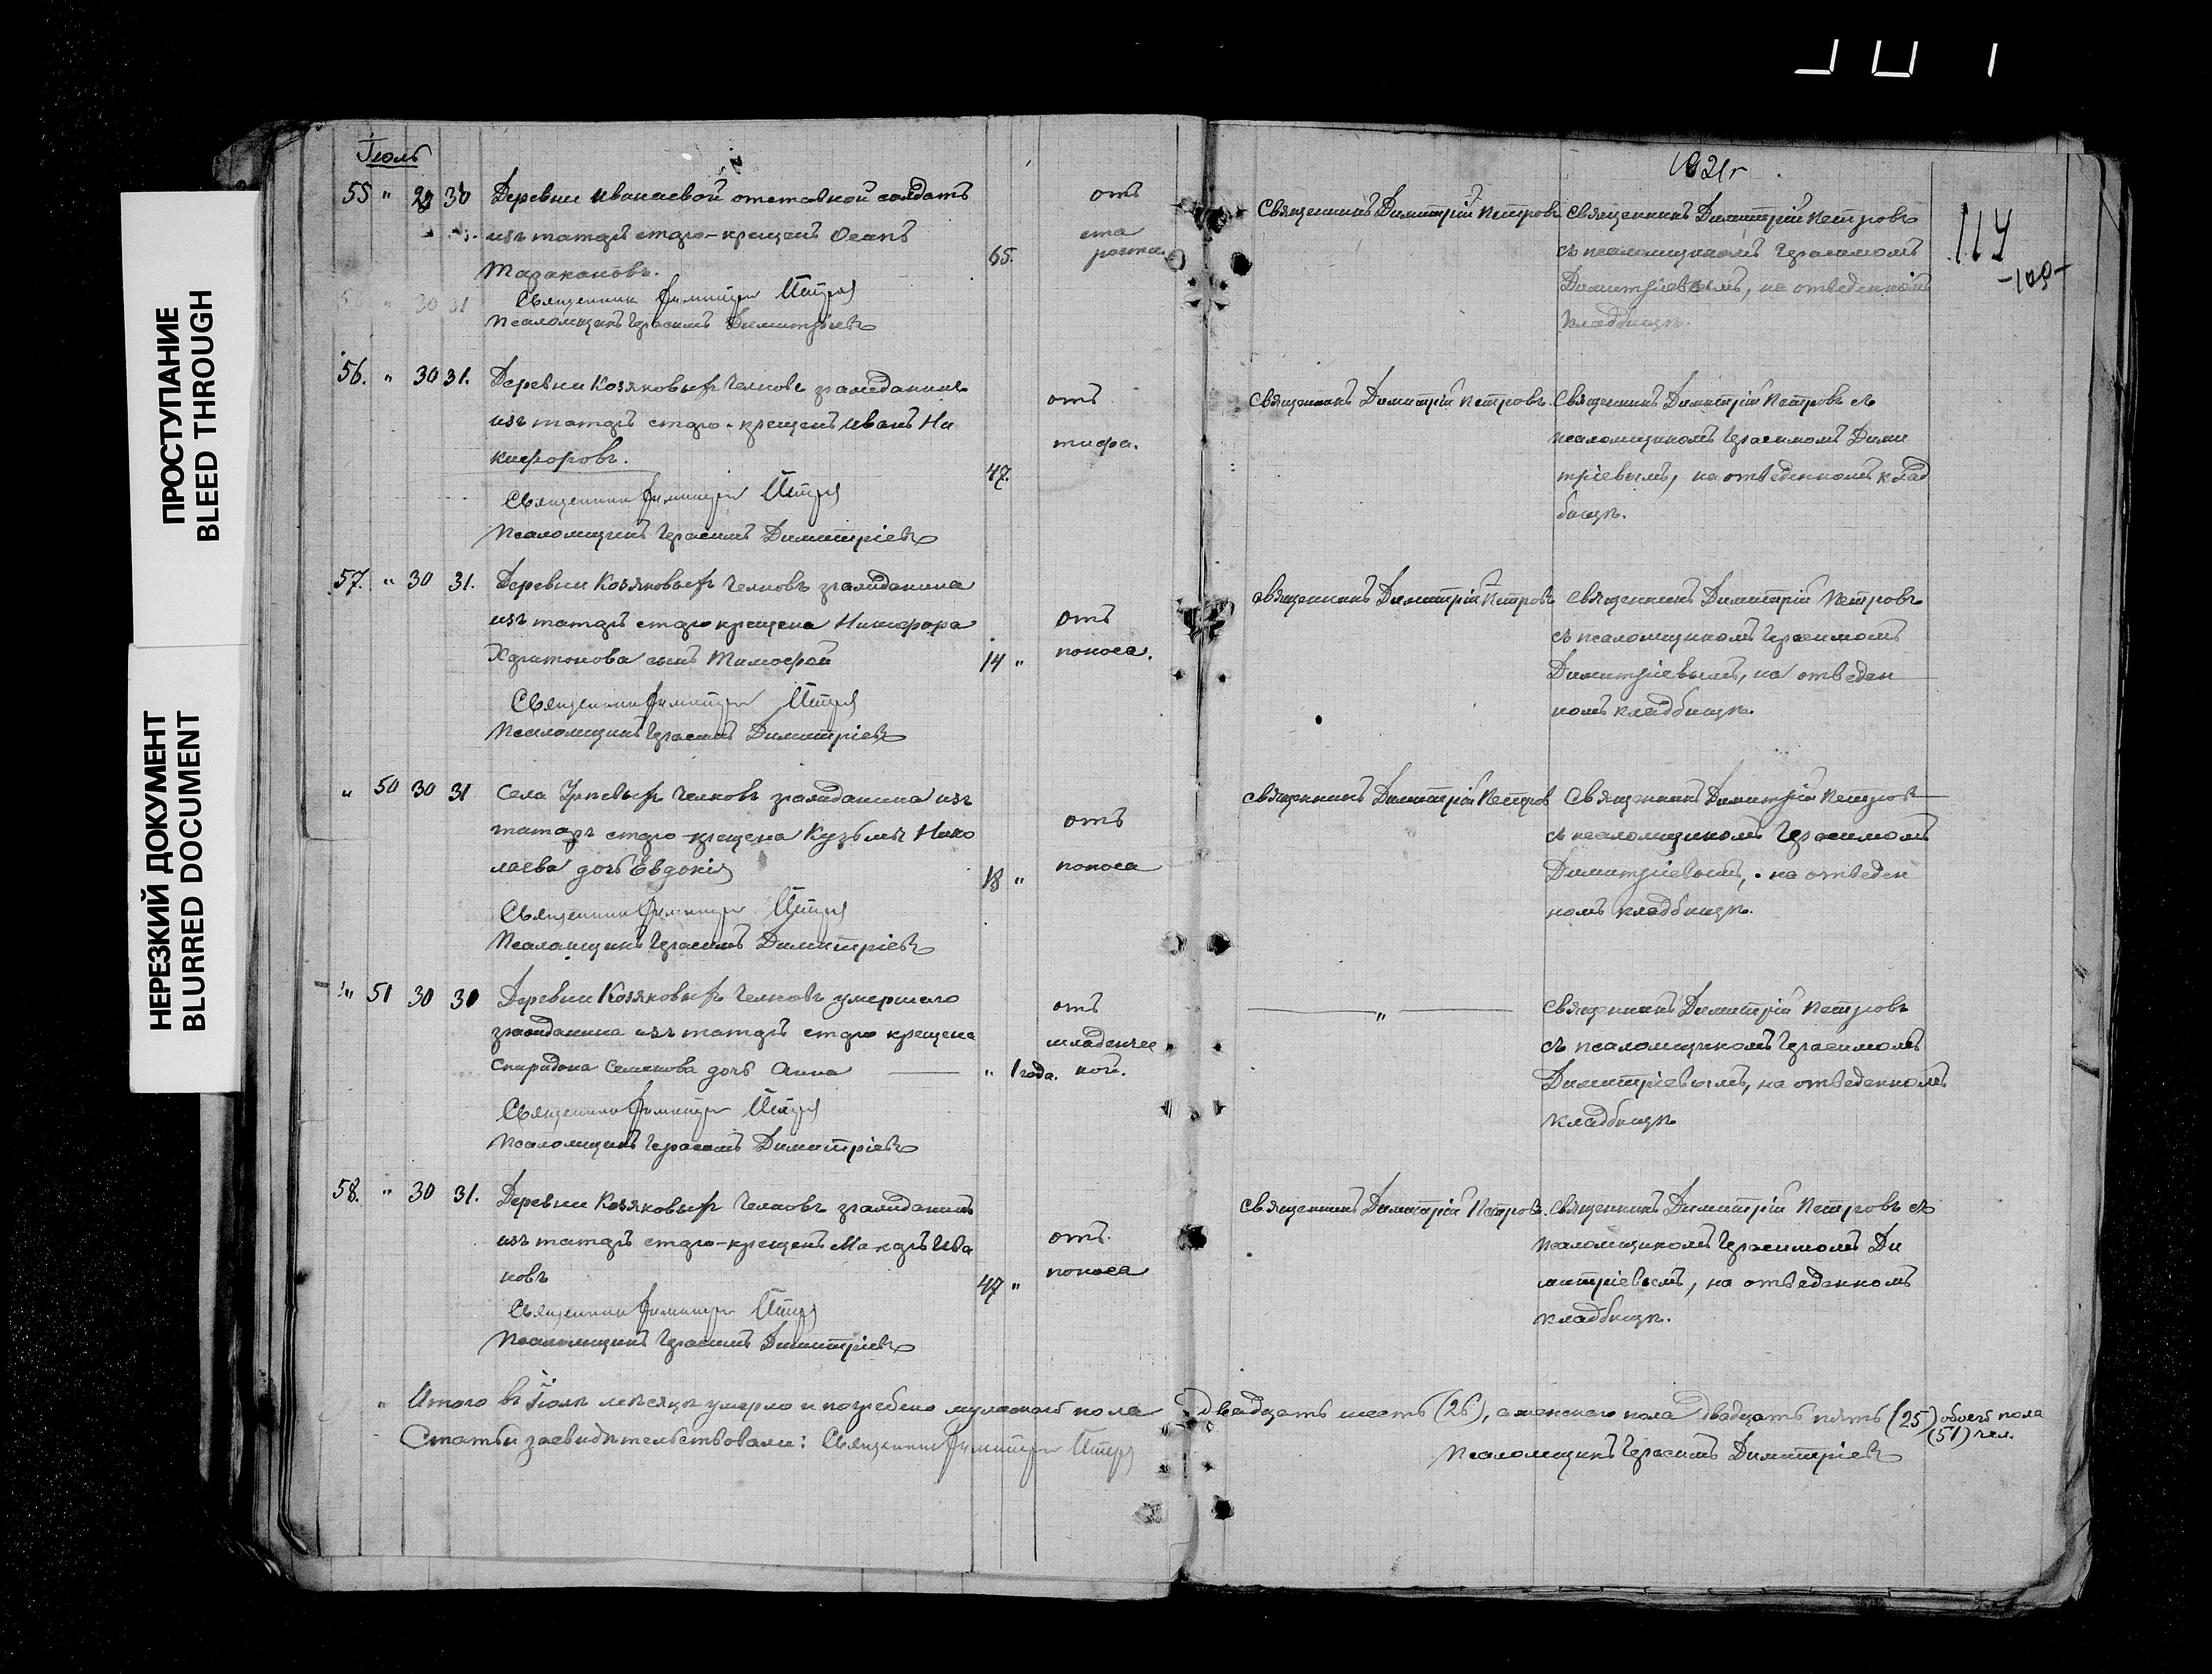 ПРОСТУПАНИЕ
BLEED THROUGH
НЕРЕЗКИЙ ДОКУМЕНТ
BLURRED DOCUMENT
Іюль
1921г
114
-109-
55 " 29 30 Деревни Иванаевой отставной солдатъ
изъ татаръ старо-крещенъ Осипъ
Таракановъ.
65.
отъ
ста
рости.
Священникъ Димитрій Петровъ
Псаломщикъ Герасимъ Димитріевъ
Священникъ Димитрій Петровъ
Священникъ Димитрій Петровъ
съ псаломщикомъ Герасимомъ
Димитріевымъ, на отведенномъ
кладбищѣ.
56. " 30 31. Деревни Козяковыхъ Челновъ гражданинъ
изъ татаръ старо-крещенъ Иванъ Ни
кифоровъ.
47.
отъ
тифа.
Священникъ Димитрій Петровъ
Псаломщикъ Герасимъ Димитріевъ
Священникъ Димитрій Петровъ.
Священникъ Димитрій Петровъ съ
псаломщикомъ Герасимомъ Дими
тріевымъ, на отведенномъ клад
бищѣ.
57. " 30 31. Деревни Козяковыхъ Челновъ гражданина
изъ татаръ старо крещена Никифора
Харитонова сынъ Тимофей
14 "
отъ
поноса.
Священникъ Димитрій Петровъ
Псаломщикъ Герасимъ Димитріевъ
Священникъ Димитрій Петровъ
Священникъ Димитрій Петровъ
съ псаломщикомъ Герасимомъ
Димитріевымъ, на отведен
номъ кладбищѣ.
" 50 30 31 Села Челновъ гражданина изъ
татаръ старо-крещена Кузьмы Нико
лаева дочь Евдокія
18 "
отъ
поноса
Священникъ Димитрій Петровъ
Псаломщикъ Герасимъ Димитріевъ
Священникъ Димитрій Петров
Священникъ Димитрій Петровъ
съ псаломщикомъ Герасимомъ
Димитріевымъ, на отведен
номъ кладбищѣ.
" 51 30 31 Деревни Козяковыхъ Челновъ умершаго
гражданина изъ татаръ старо крещена
Спиридона Семенова дочь Анна
" 1 года.
отъ
младенчес
кой.
Священникъ Димитрій Петровъ
Псаломщикъ Герасимъ Димитріевъ
"
Священникъ Димитрій Петровъ
съ псаломщикомъ Герасимомъ
Димитріевымъ, на отведенномъ
кладбищѣ
58. " 30 31. Деревни Козяковыхъ Челновъ гражданинъ
изъ татаръ старо-крещенъ Макаръ Ива
новъ
47 "
отъ.
поноса
Священникъ Димитрій Петровъ
Псаломщикъ Герасимъ Димитріевъ
Священникъ Димитрій Петровъ.
Священникъ Димитрій Петровъ съ
псаломщикомъ Герасимомъ Ди
митріевымъ, на отведенномъ
кладбищѣ.
" Итого въ Іюлѣ мѣсяцѣ умерло и погребено мужского пола двадцать шесть (26), а женскаго пола двадцать пять (25) обоего пола
(51) чел.
Статьи засвидѣтельствовали: Священникъ Димитрій Петровъ
Псаломщикъ Герасимъ Димитріевъ